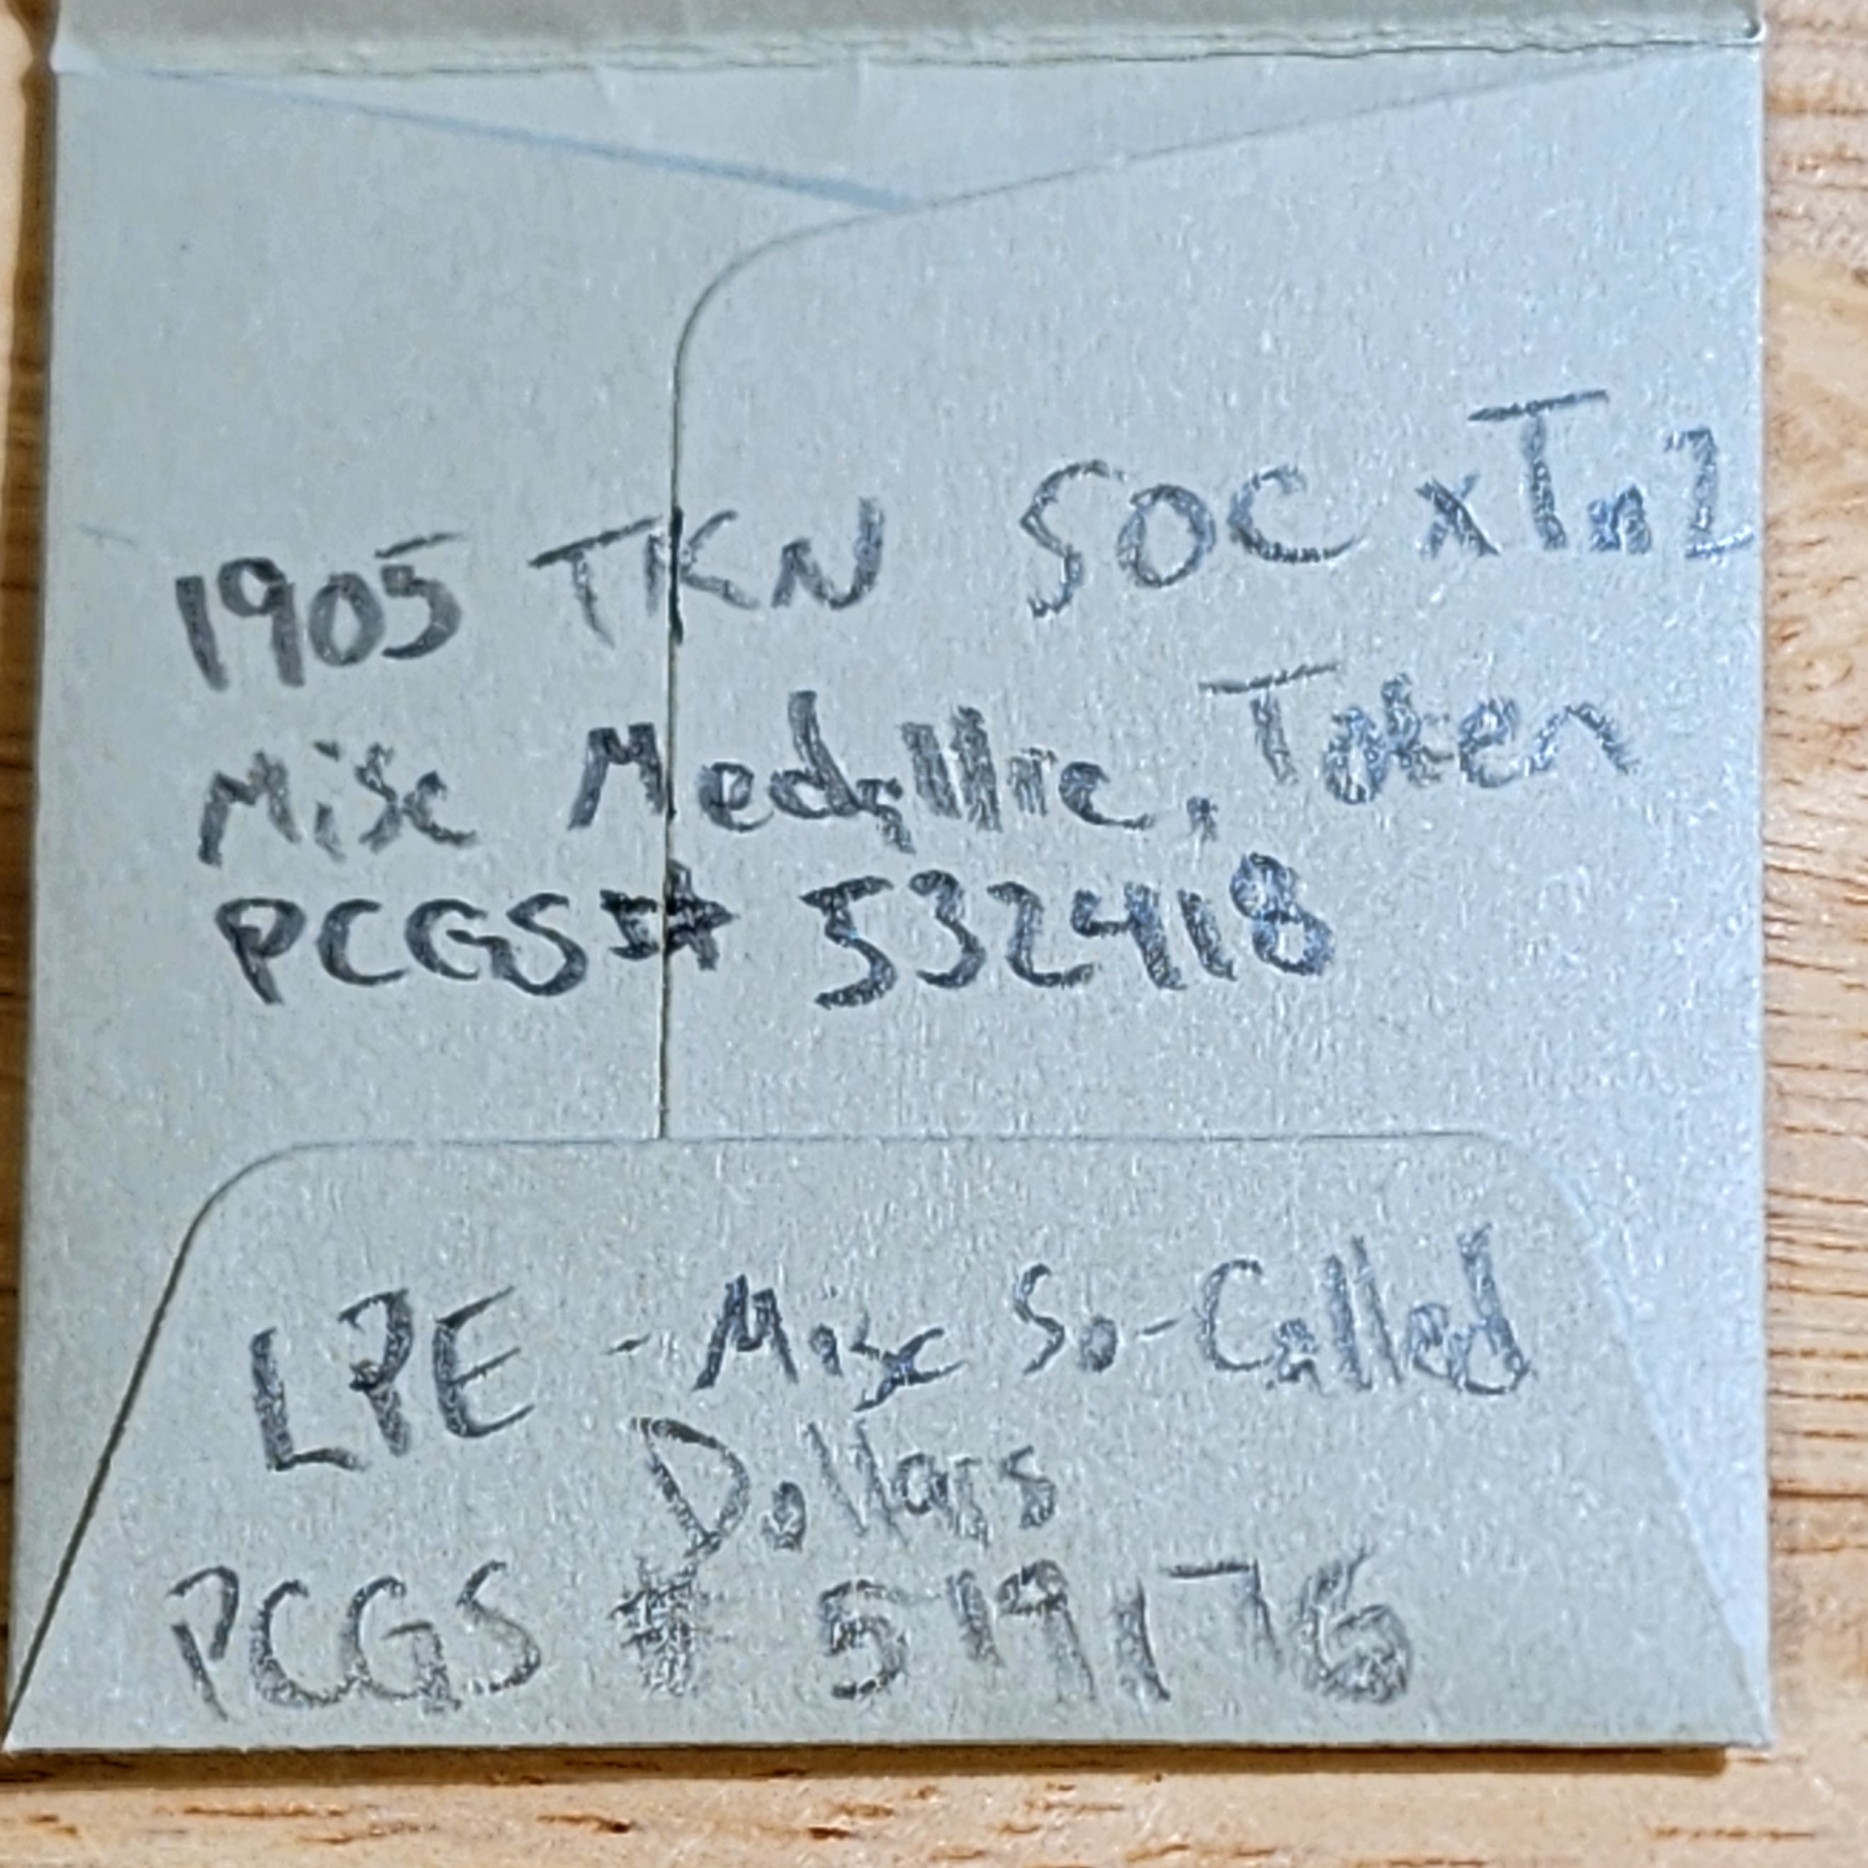 1905 TKN SOC xTn2
Misc Medallic, Token
PCGS# 532418
LPE - Misc So-Called
Dollars
PCGS # 519176